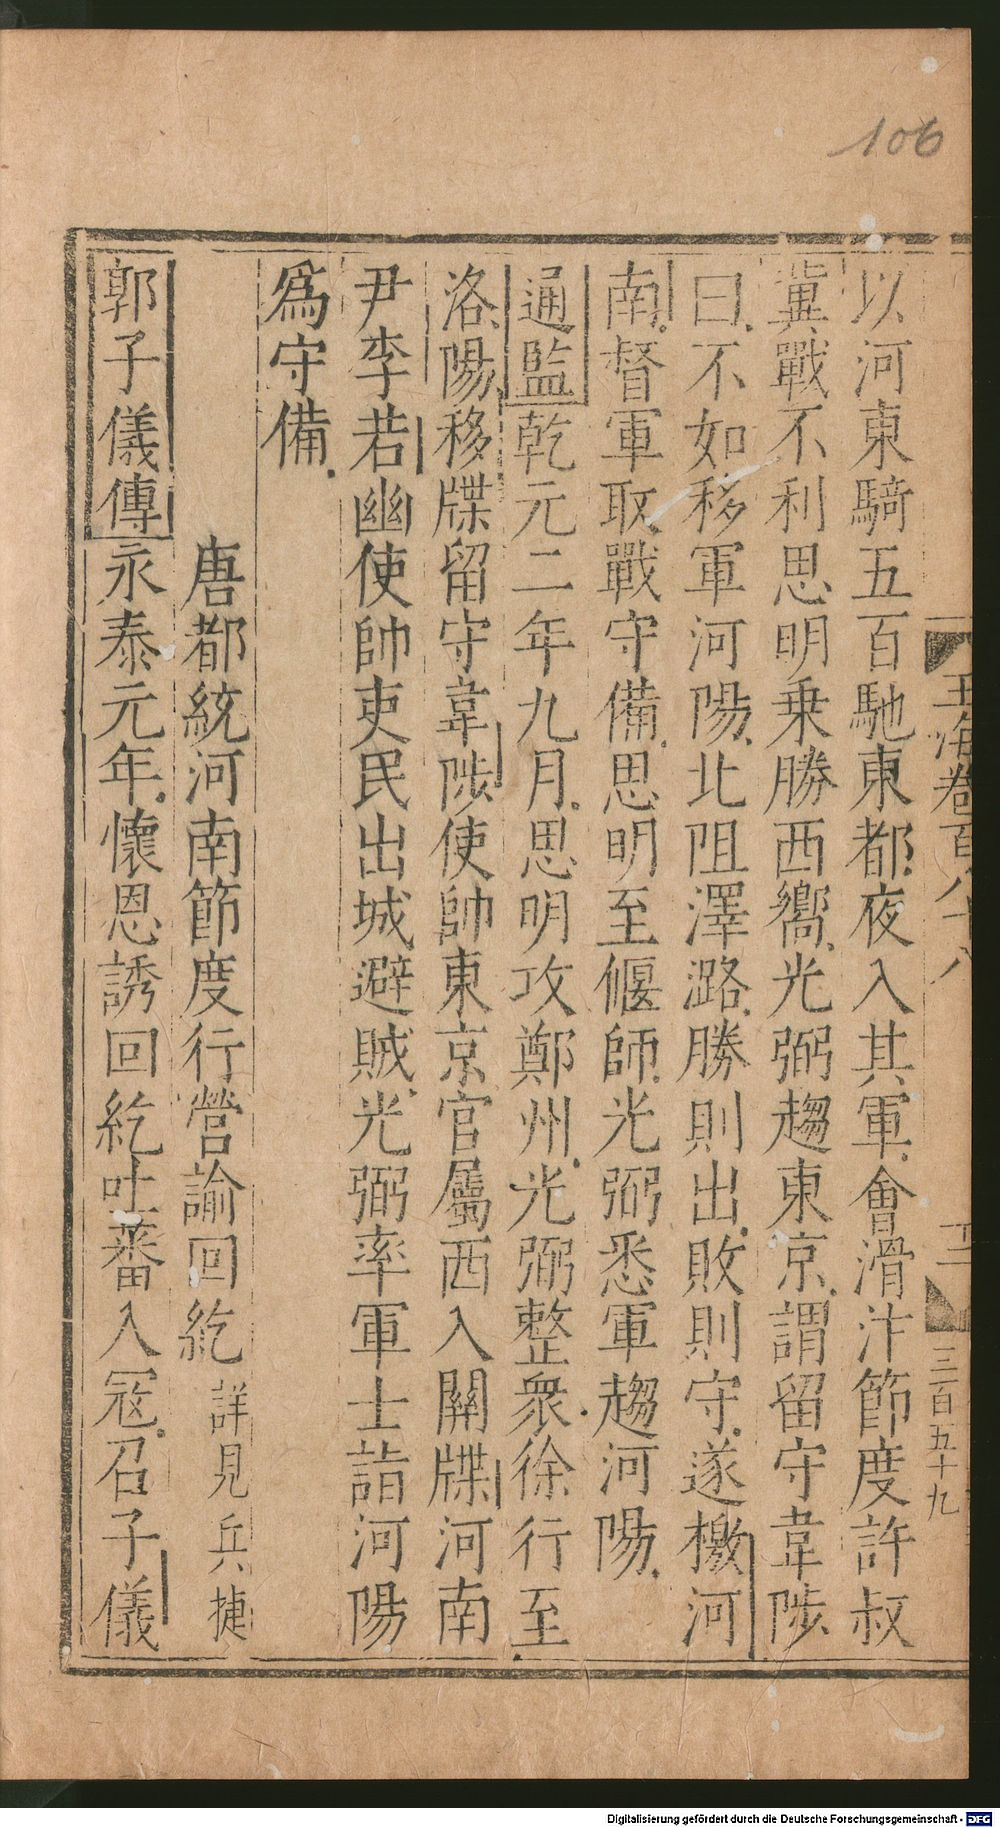 106
以河東騎五百馳東都夜入其軍會滑汴節度許叔
冀戰不利思明乗勝西嚮光弼趨東京謂留守韋陟
曰不如移軍河陽北阻澤潞勝則出敗則守遂檄河
南督軍取戰守備思明至偃師光弼悉軍趨河陽
通監乾元二年九月思明攻鄭州光弼整衆徐行至
洛陽移牒留守韋陟使帥東京官屬西入關牒河南
尹李若幽使帥吏民出城避賊光弼率軍士詣河陽
爲守備
唐都統河南節度行營諭回紇 詳見兵捷
郭子儀傳永泰元年懷恩誘回紇吐蕃入冦召子儀
玉海卷百八十八
三百五十九
Digitalisierung gefördert durch die Deutsche Forschungsgemeinschaft - DFG